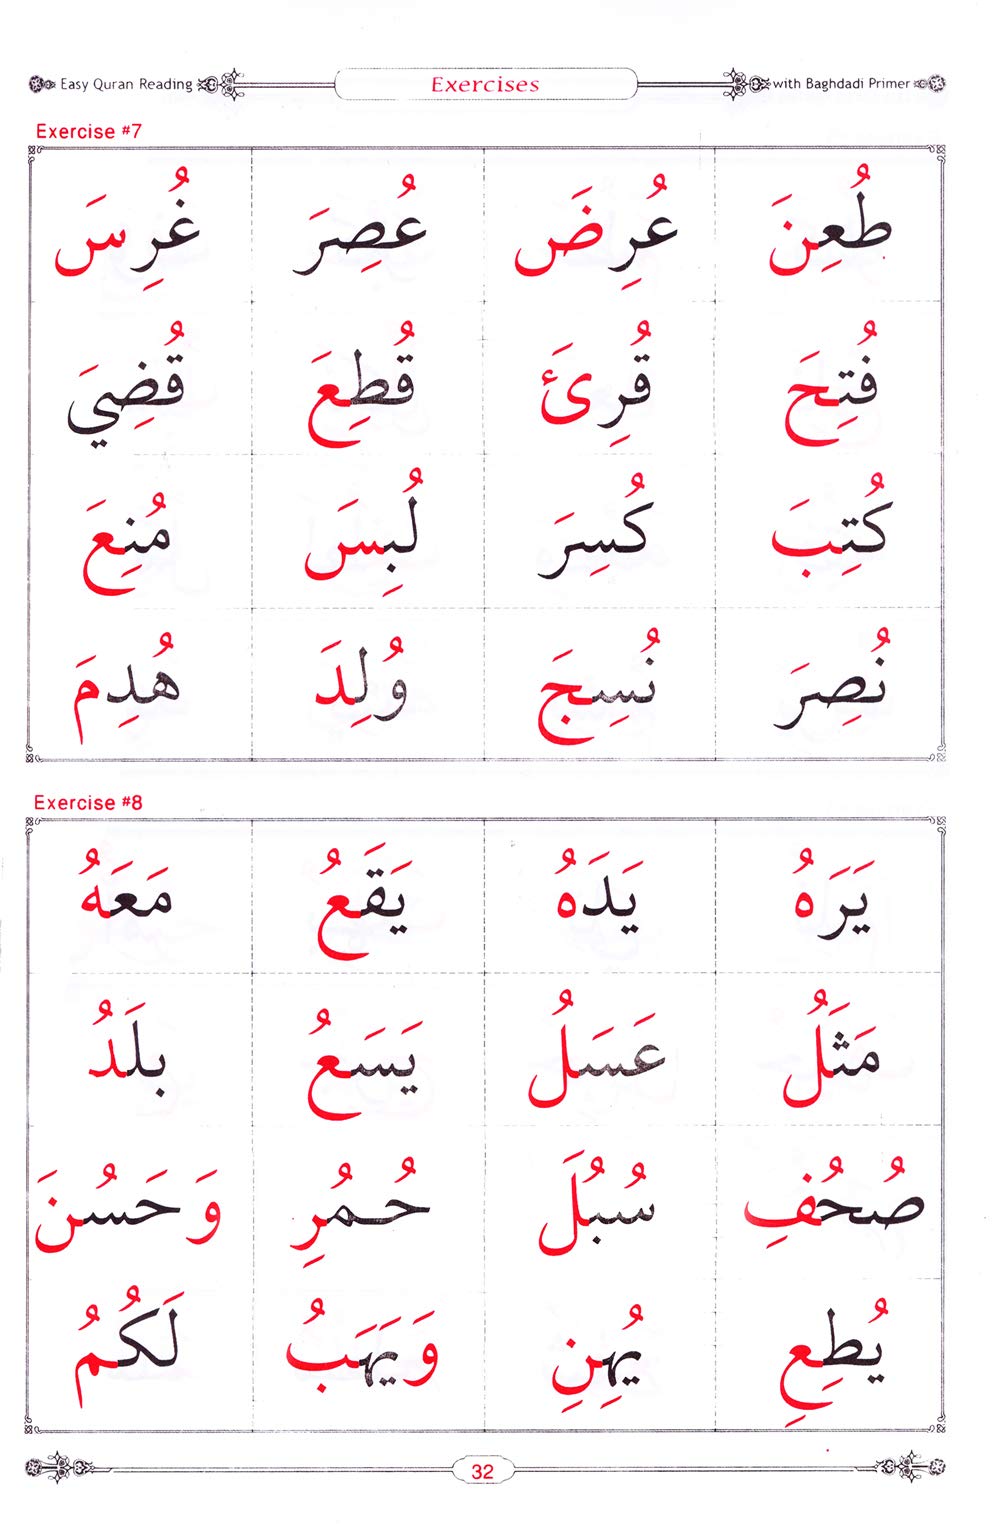 Easy Quran Reading Exercises with Baghdadi Primer
Exercise #7
طُعِنَ عُرِضَ عُصِرَ غُرِسَ
فُتِحَ قُرِئَ قُطِعَ قُضِيَ
كُتِبَ كُسِرَ لُبِسَ مُنِعَ
نُصِرَ نُسِجَ وُلِدَ هُدِمَ
Exercise #8
يَرَهُ يَدَهُ يَقَعُ مَعَهُ
مَثَلُ عَسَلُ يَسَعُ بلَدُ
صُحُفِ سُبُلَ حُمُرِ وَحَسُنَ
يُطِعِ يُهِنِ وَيَهَبُ لَكُمُ
32